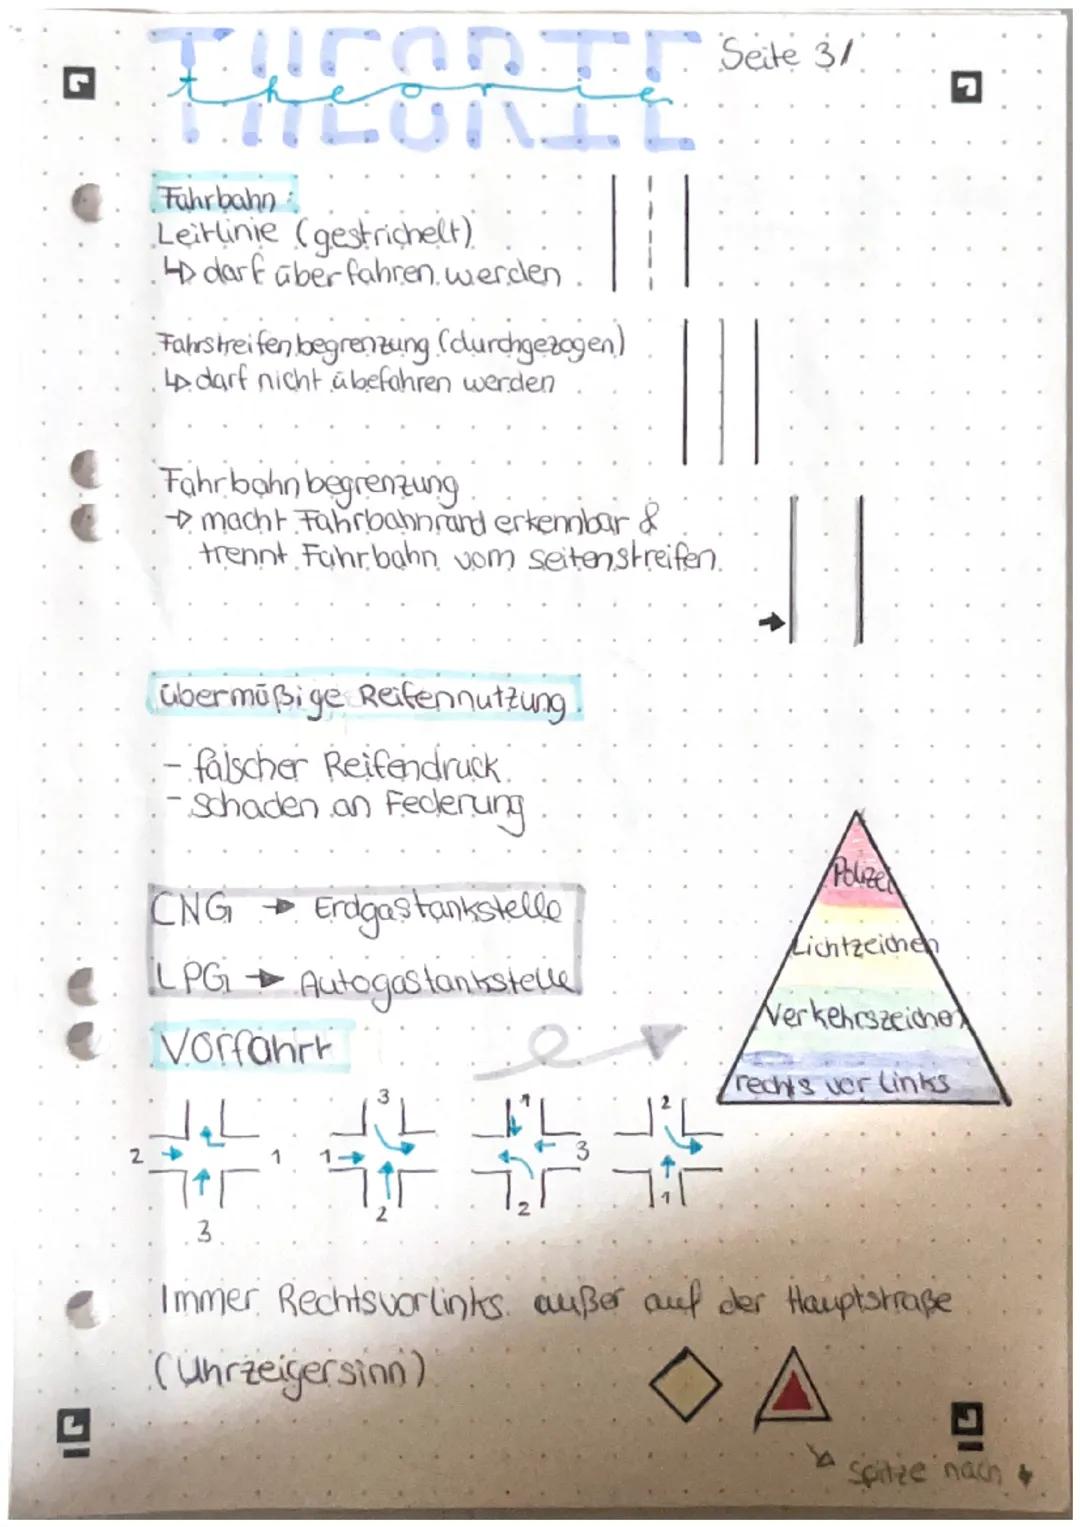 THEORIE
theorie
Seite 3/
Fahrbahn:
Leitlinie (gestrichelt)
↳ darf überfahren werden
Fahrstreifenbegrenzung (durchgezogen)
↳ darf nicht übefahren werden
Fahrbahnbegrenzung
→ macht Fahrbahnrand erkennbar &
trennt Fahrbahn vom Seitenstreifen.
übermäßige Reifennutzung
- falscher Reifendruck
- Schaden an Federung
CNG → Erdgastankstelle
LPG → Autogastankstelle
Polizei
Lichtzeichen
Verkehrszeichen
rechts vor links
Vorfahrt
2 1 3
3 1 2
1 3 2
2 1
Immer Rechtsvorlinks außer auf der Hauptstraße
(Uhrzeigersinn)
Spitze nach ↓